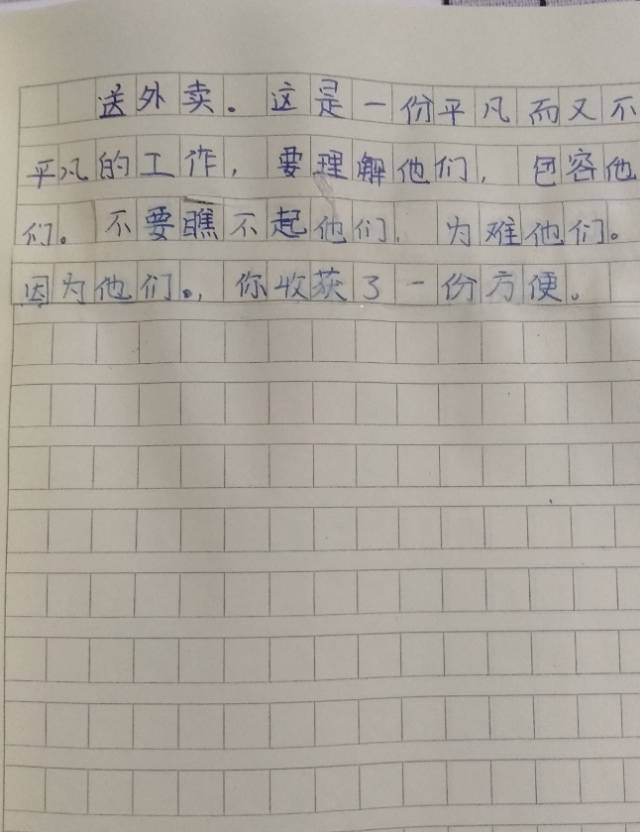 送外卖。这是一份平凡而又不
平凡的工作，要理解他们，包容他
们。不要瞧不起他们，为难他们。
因为他们。，你收获了一份方便。